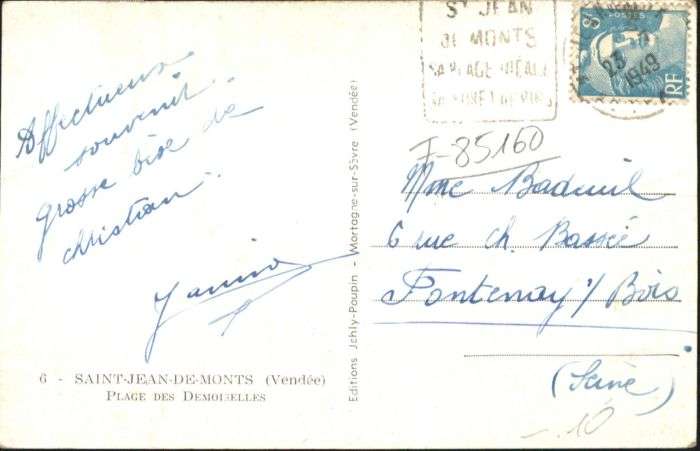 Affectueux
souvenir.
grosse bise de
christian.
Janine
6 - SAINT-JEAN-DE-MONTS (Vendée)
PLAGE DES DEMOISELLES
Editions Jehly-Poupin - Mortagne-sur-Sèvre (Vendée)
ST JEAN
DE MONTS
SA PLAGE IDÉALE
SA FORET DE PINS
POSTES
RF
23
1949
F-85160
Mme Baduil
6 rue Ch. Bassée
Fontenay s/ Bois
(Seine)
-.10